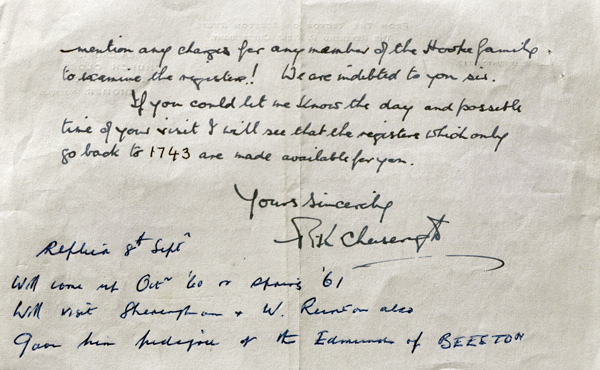 mention any charges for any member of the Hooke family.
to examine the registers! We are indebted to you sir.
If you could let me know the day and possible
time of your visit I will see that the registers which only
go back to 1743 are made available for you.
Yours sincerely
RK
Replied 8th Septr
Will come up Octr '60 or Spring '61
Will visit Sheringham & W. Runton also
Gave him pedigree of the Edmunds of BEESTON